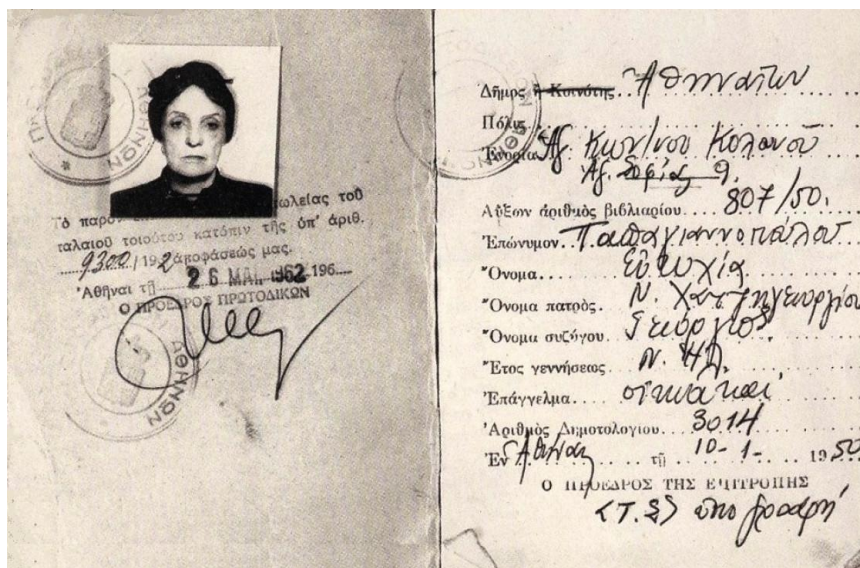 Τὸ παρὸν ωλείας τοῦ
ταλαιοῦ τοιούτου κατόπιν τῆς ὑπ' ἀριθ.
9300/1962 ἀποφάσεώς μας.
Ἀθῆναι τῇ 26 ΜΑΪ. 1962 196
Ο ΠΡΟΕΔΡΟΣ ΠΡΩΤΟΔΙΚΩΝ
ΑΘΗΝΩΝ
Δῆμος ἢ Κοινότης Ἀθηναίων
Πόλις
Ἐνορία Ἁγ. Κων/νου Κολωνοῦ
Ἁγ. Σοφίας 9.
Αὔξων ἀριθμὸς βιβλιαρίου 807/50.
Ἐπώνυμον Παπαγιαννοπούλου
Ὄνομα Εὐτυχία
Ὄνομα πατρὸς Ν. Χατζηγεωργίου
Ὄνομα συζύγου Γεώργιος
Ἔτος γεννήσεως
Ἐπάγγελμα οἰκιακά
Ἀριθμὸς Δημοτολογίου 3014
Ἐν Ἀθήναις τῇ 10-1- 1950
Ο ΠΡΟΕΔΡΟΣ ΤΗΣ ΕΠΙΤΡΟΠΗΣ
(Τ.Σ) ὑπογραφή